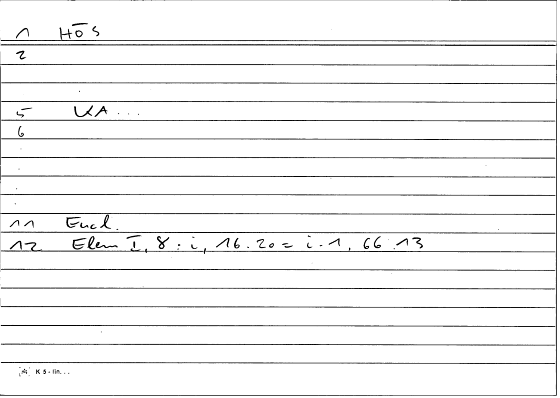 1 HōS
2
5 KA...
6
11 Eucl.
12 Elem I, 8 : i, 16.20 = i.1, 66.13
K 5 - lin...